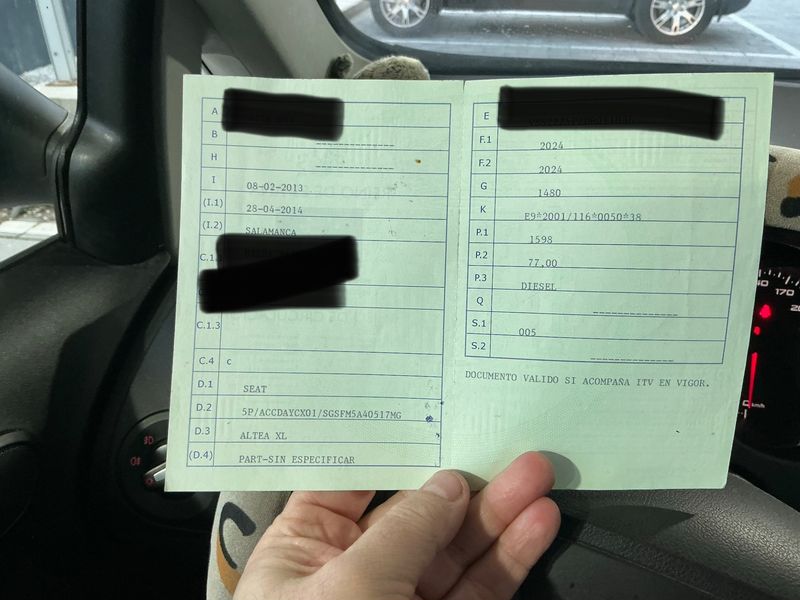 A
B
H
I 08-02-2013
(I.1) 28-04-2014
(I.2) SALAMANCA
C.1.
C.1.3
C.4 c
D.1 SEAT
D.2 5P/ACCDAYCX01/SGSFM5A40517MG
D.3 ALTEA XL
(D.4) PART-SIN ESPECIFICAR
E
F.1 2024
F.2 2024
G 1480
K E9*2001/116*0050*38
P.1 1598
P.2 77,00
P.3 DIESEL
Q
S.1 005
S.2
DOCUMENTO VALIDO SI ACOMPAÑA ITV EN VIGOR.
170
km/h